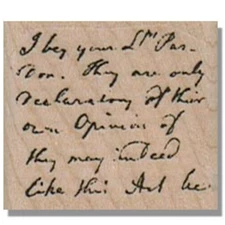 I beg your Ldps Par-
don. They are only
declaratory of their
own Opinion of
they may indeed
like this Act be